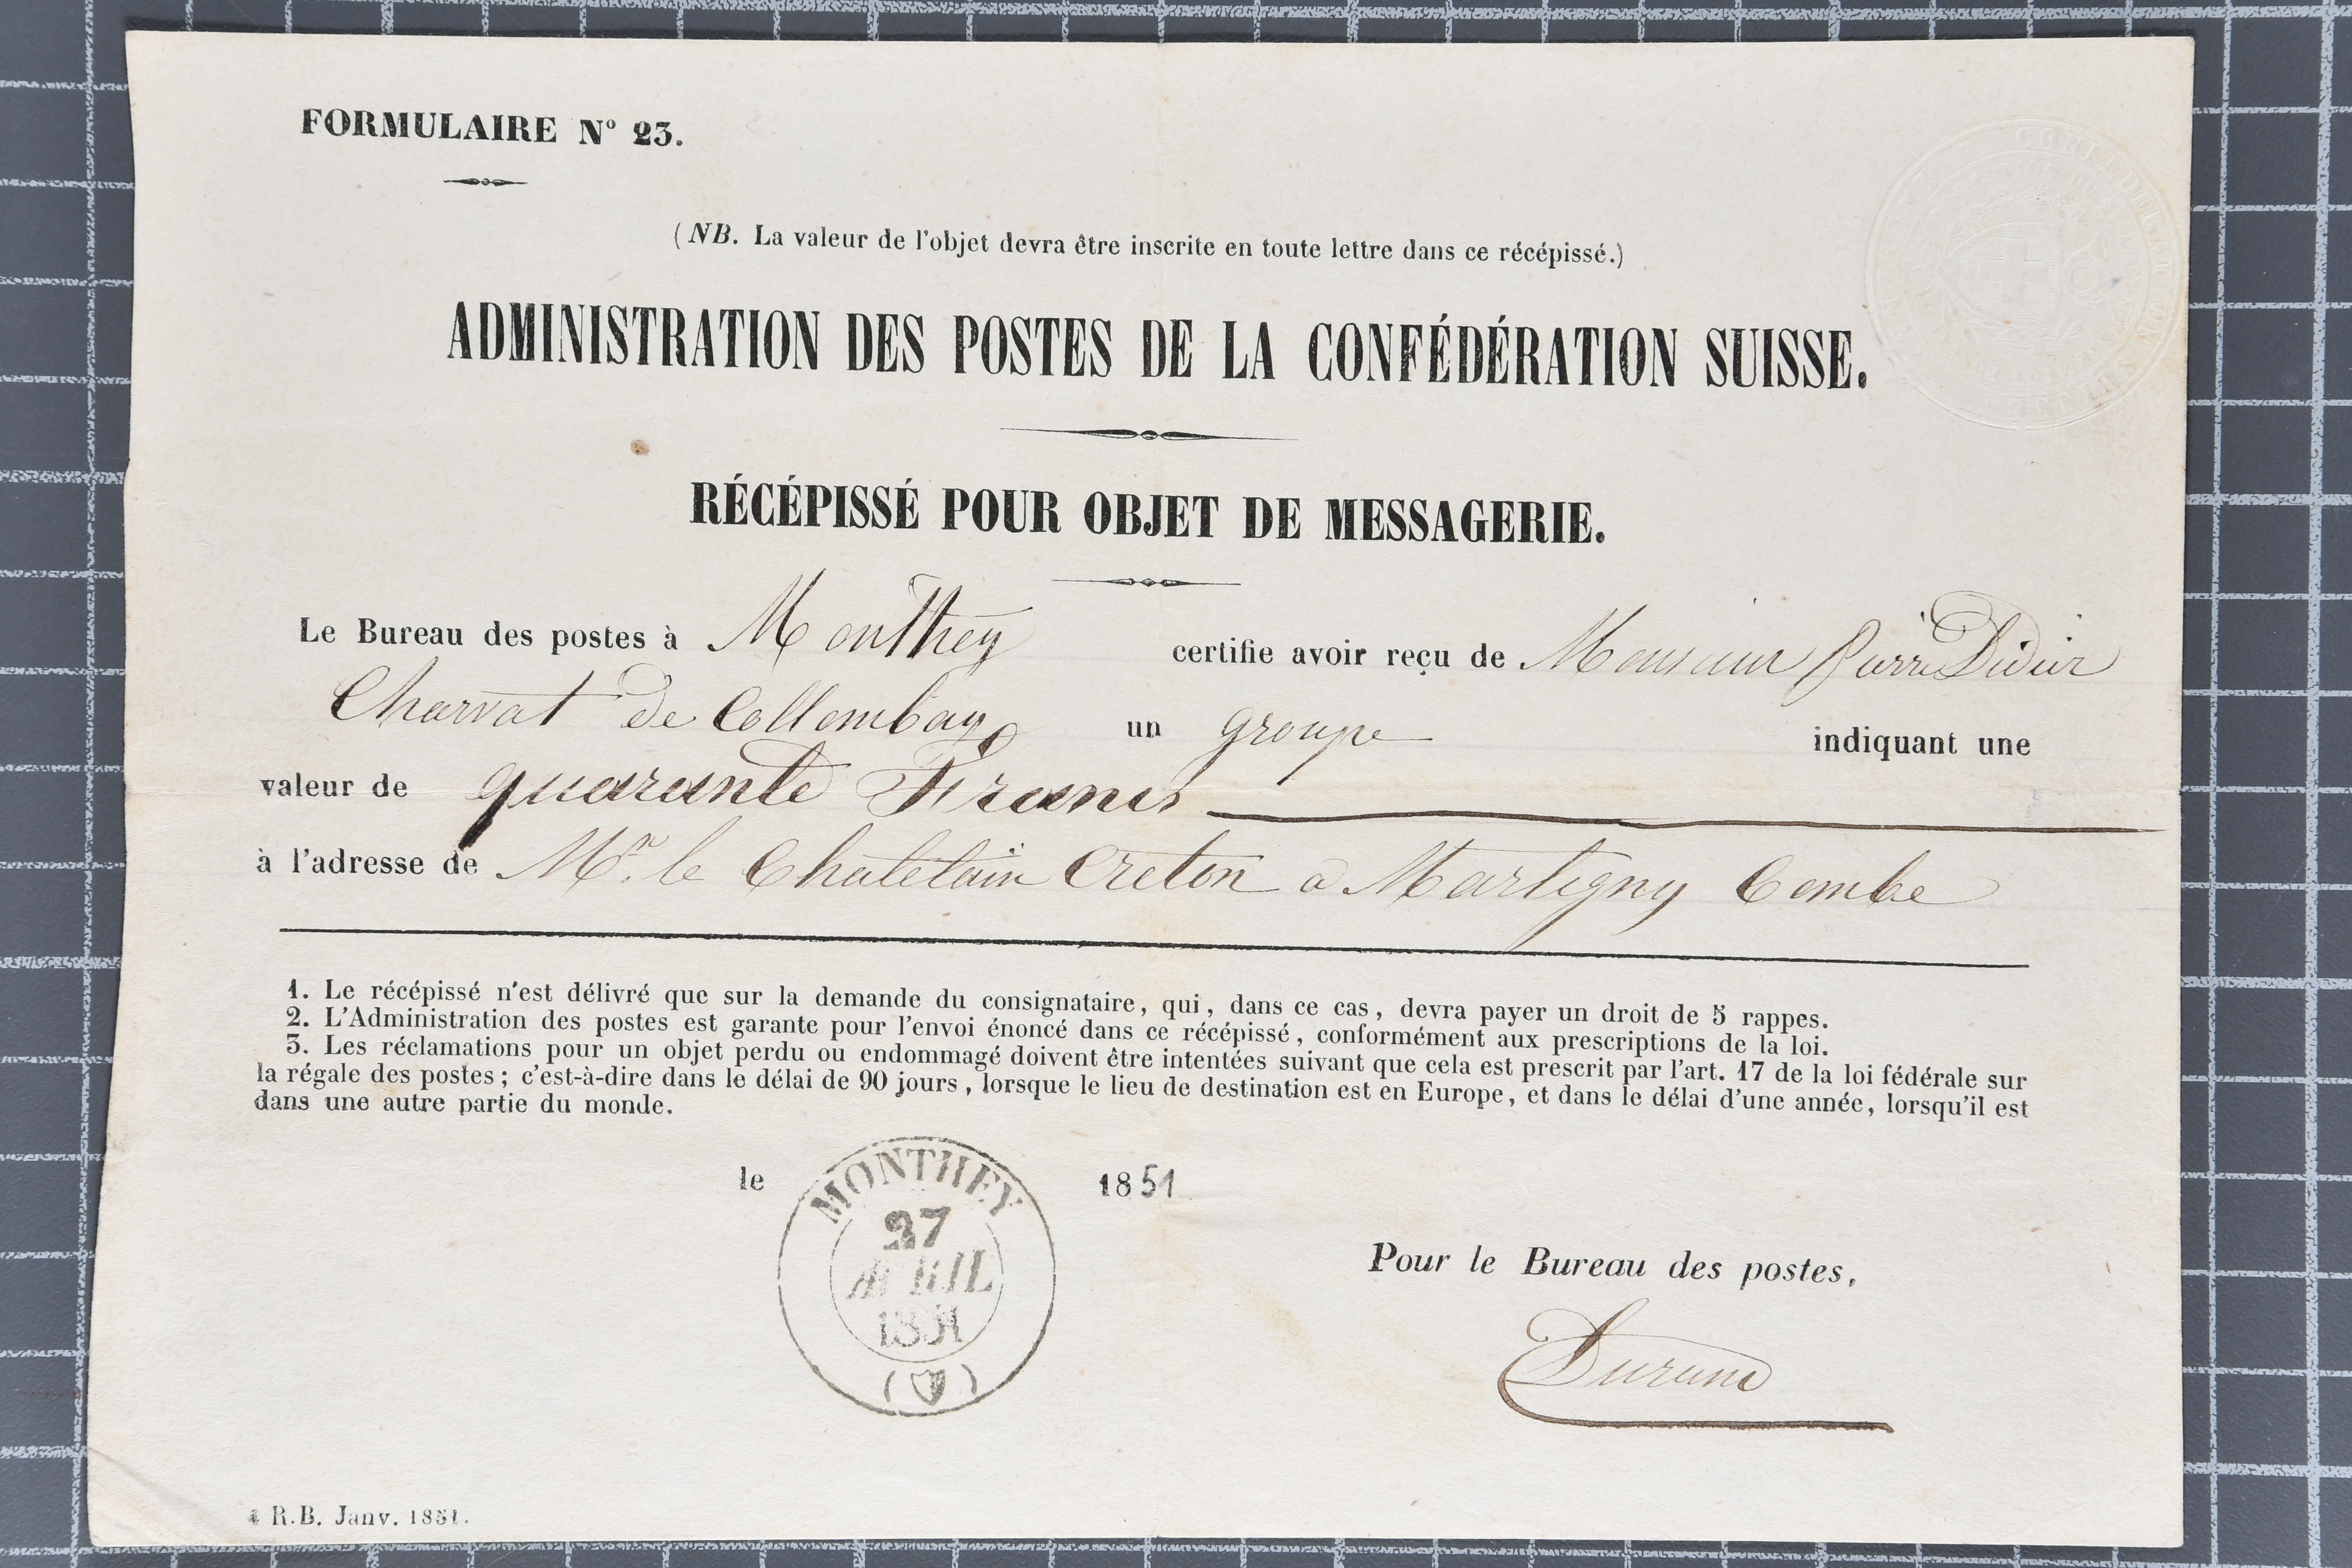 FORMULAIRE Nº 23.
(NB. La valeur de l'objet devra être inscrite en toute lettre dans ce récépissé.)
ADMINISTRATION DES POSTES DE LA CONFÉDÉRATION SUISSE.
RÉCÉPISSÉ POUR OBJET DE MESSAGERIE.
Le Bureau des postes à Monthey certifie avoir reçu de Monsieur Pierre Didier
Charvat de Collombay un groupe indiquant une
valeur de quarante Francs
à l'adresse de Mr. le Chatelain Creton a Martigny Combe
1. Le récépissé n'est délivré que sur la demande du consignataire, qui, dans ce cas, devra payer un droit de 5 rappes.
2. L'Administration des postes est garante pour l'envoi énoncé dans ce récépissé, conformément aux prescriptions de la loi.
3. Les réclamations pour un objet perdu ou endommagé doivent être intentées suivant que cela est prescrit par l'art. 17 de la loi fédérale sur
la régale des postes; c'est-à-dire dans le délai de 90 jours, lorsque le lieu de destination est en Europe, et dans le délai d'une année, lorsqu'il est
dans une autre partie du monde.
le 1851
MONTHEY
27
AVRIL
1851
Pour le Bureau des postes,
Durand
R.B. Janv. 1851.